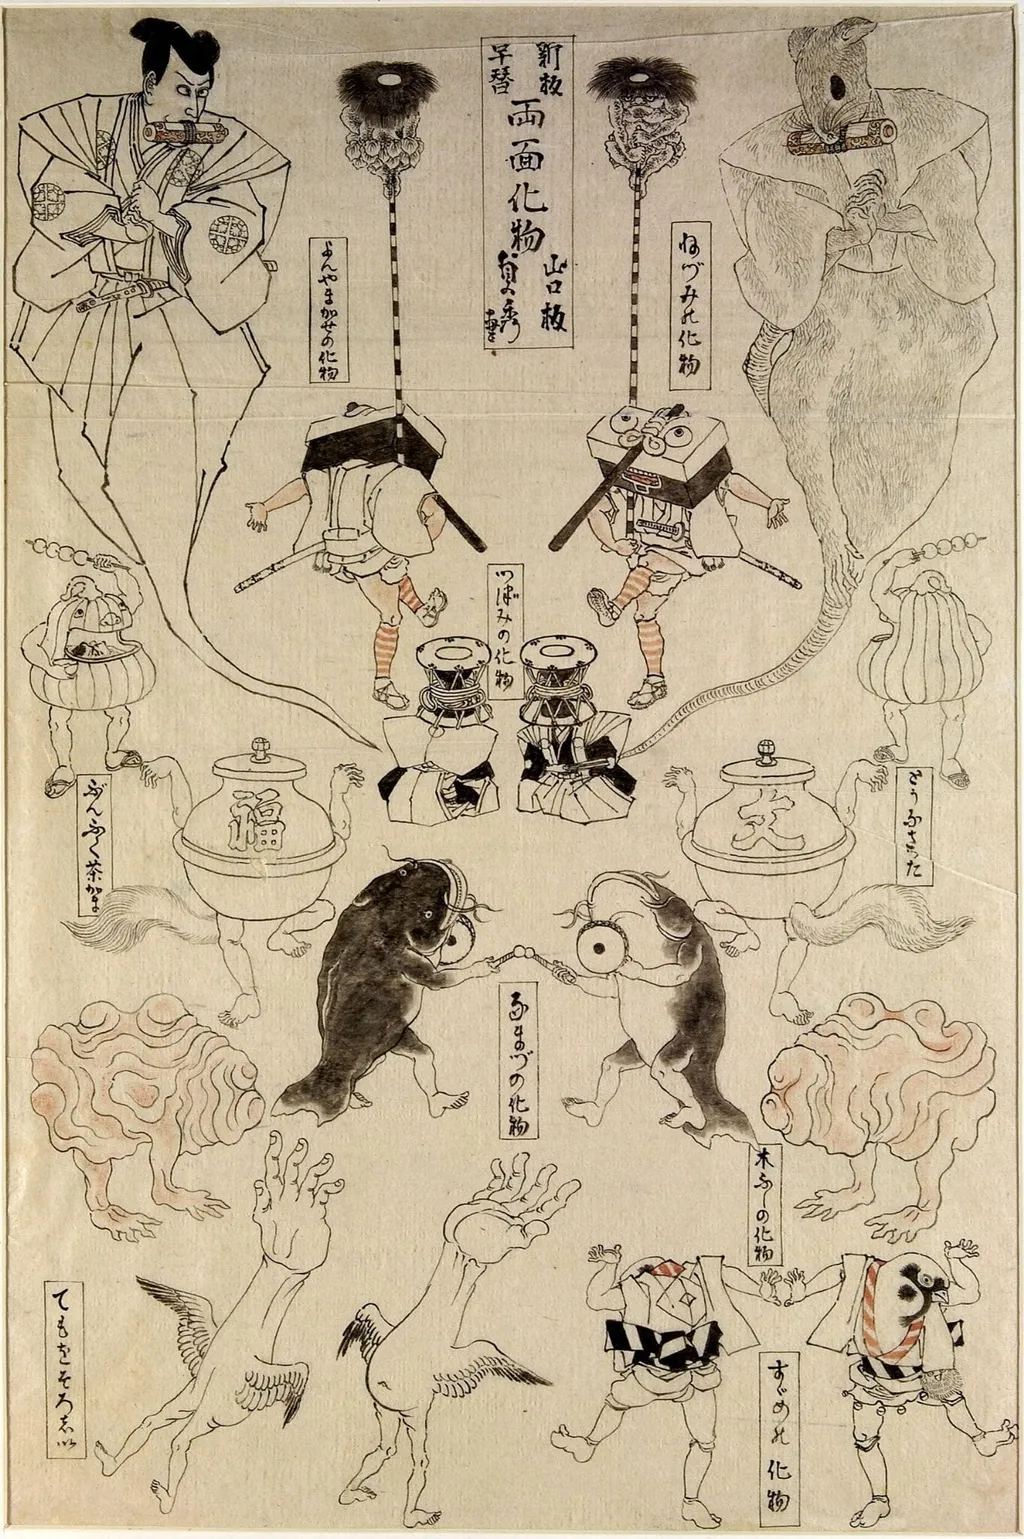 新板
早替
両面化物
山口板
貞秀画
ねづみの化物
よんやまかせの化物
つぼみの化物
とうなすった
ぶんぶく茶がま
福
文
なまづの化物
木ぶしの化物
てもをそろしい
すゞめの化物